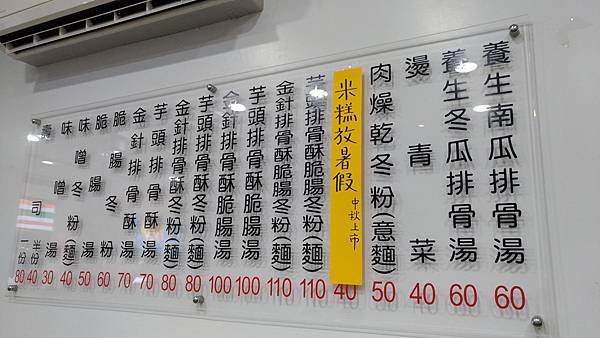 養生南瓜排骨湯 60
養生冬瓜排骨湯 60
燙青菜 40
肉燥乾冬粉(意麵) 50
米糕放暑假
中秋上市
40
芋頭排骨酥脆腸冬粉(麵) 110
金針排骨酥脆腸冬粉(麵) 110
芋頭排骨酥脆腸湯 100
金針排骨酥脆腸湯 100
芋頭排骨酥冬粉(麵) 80
金針排骨酥冬粉(麵) 80
芋頭排骨酥湯 70
金針排骨酥湯 70
脆腸冬粉 60
脆腸湯 50
味噌冬粉(麵) 40
味噌湯 30
壽司
半份 40
一份 80